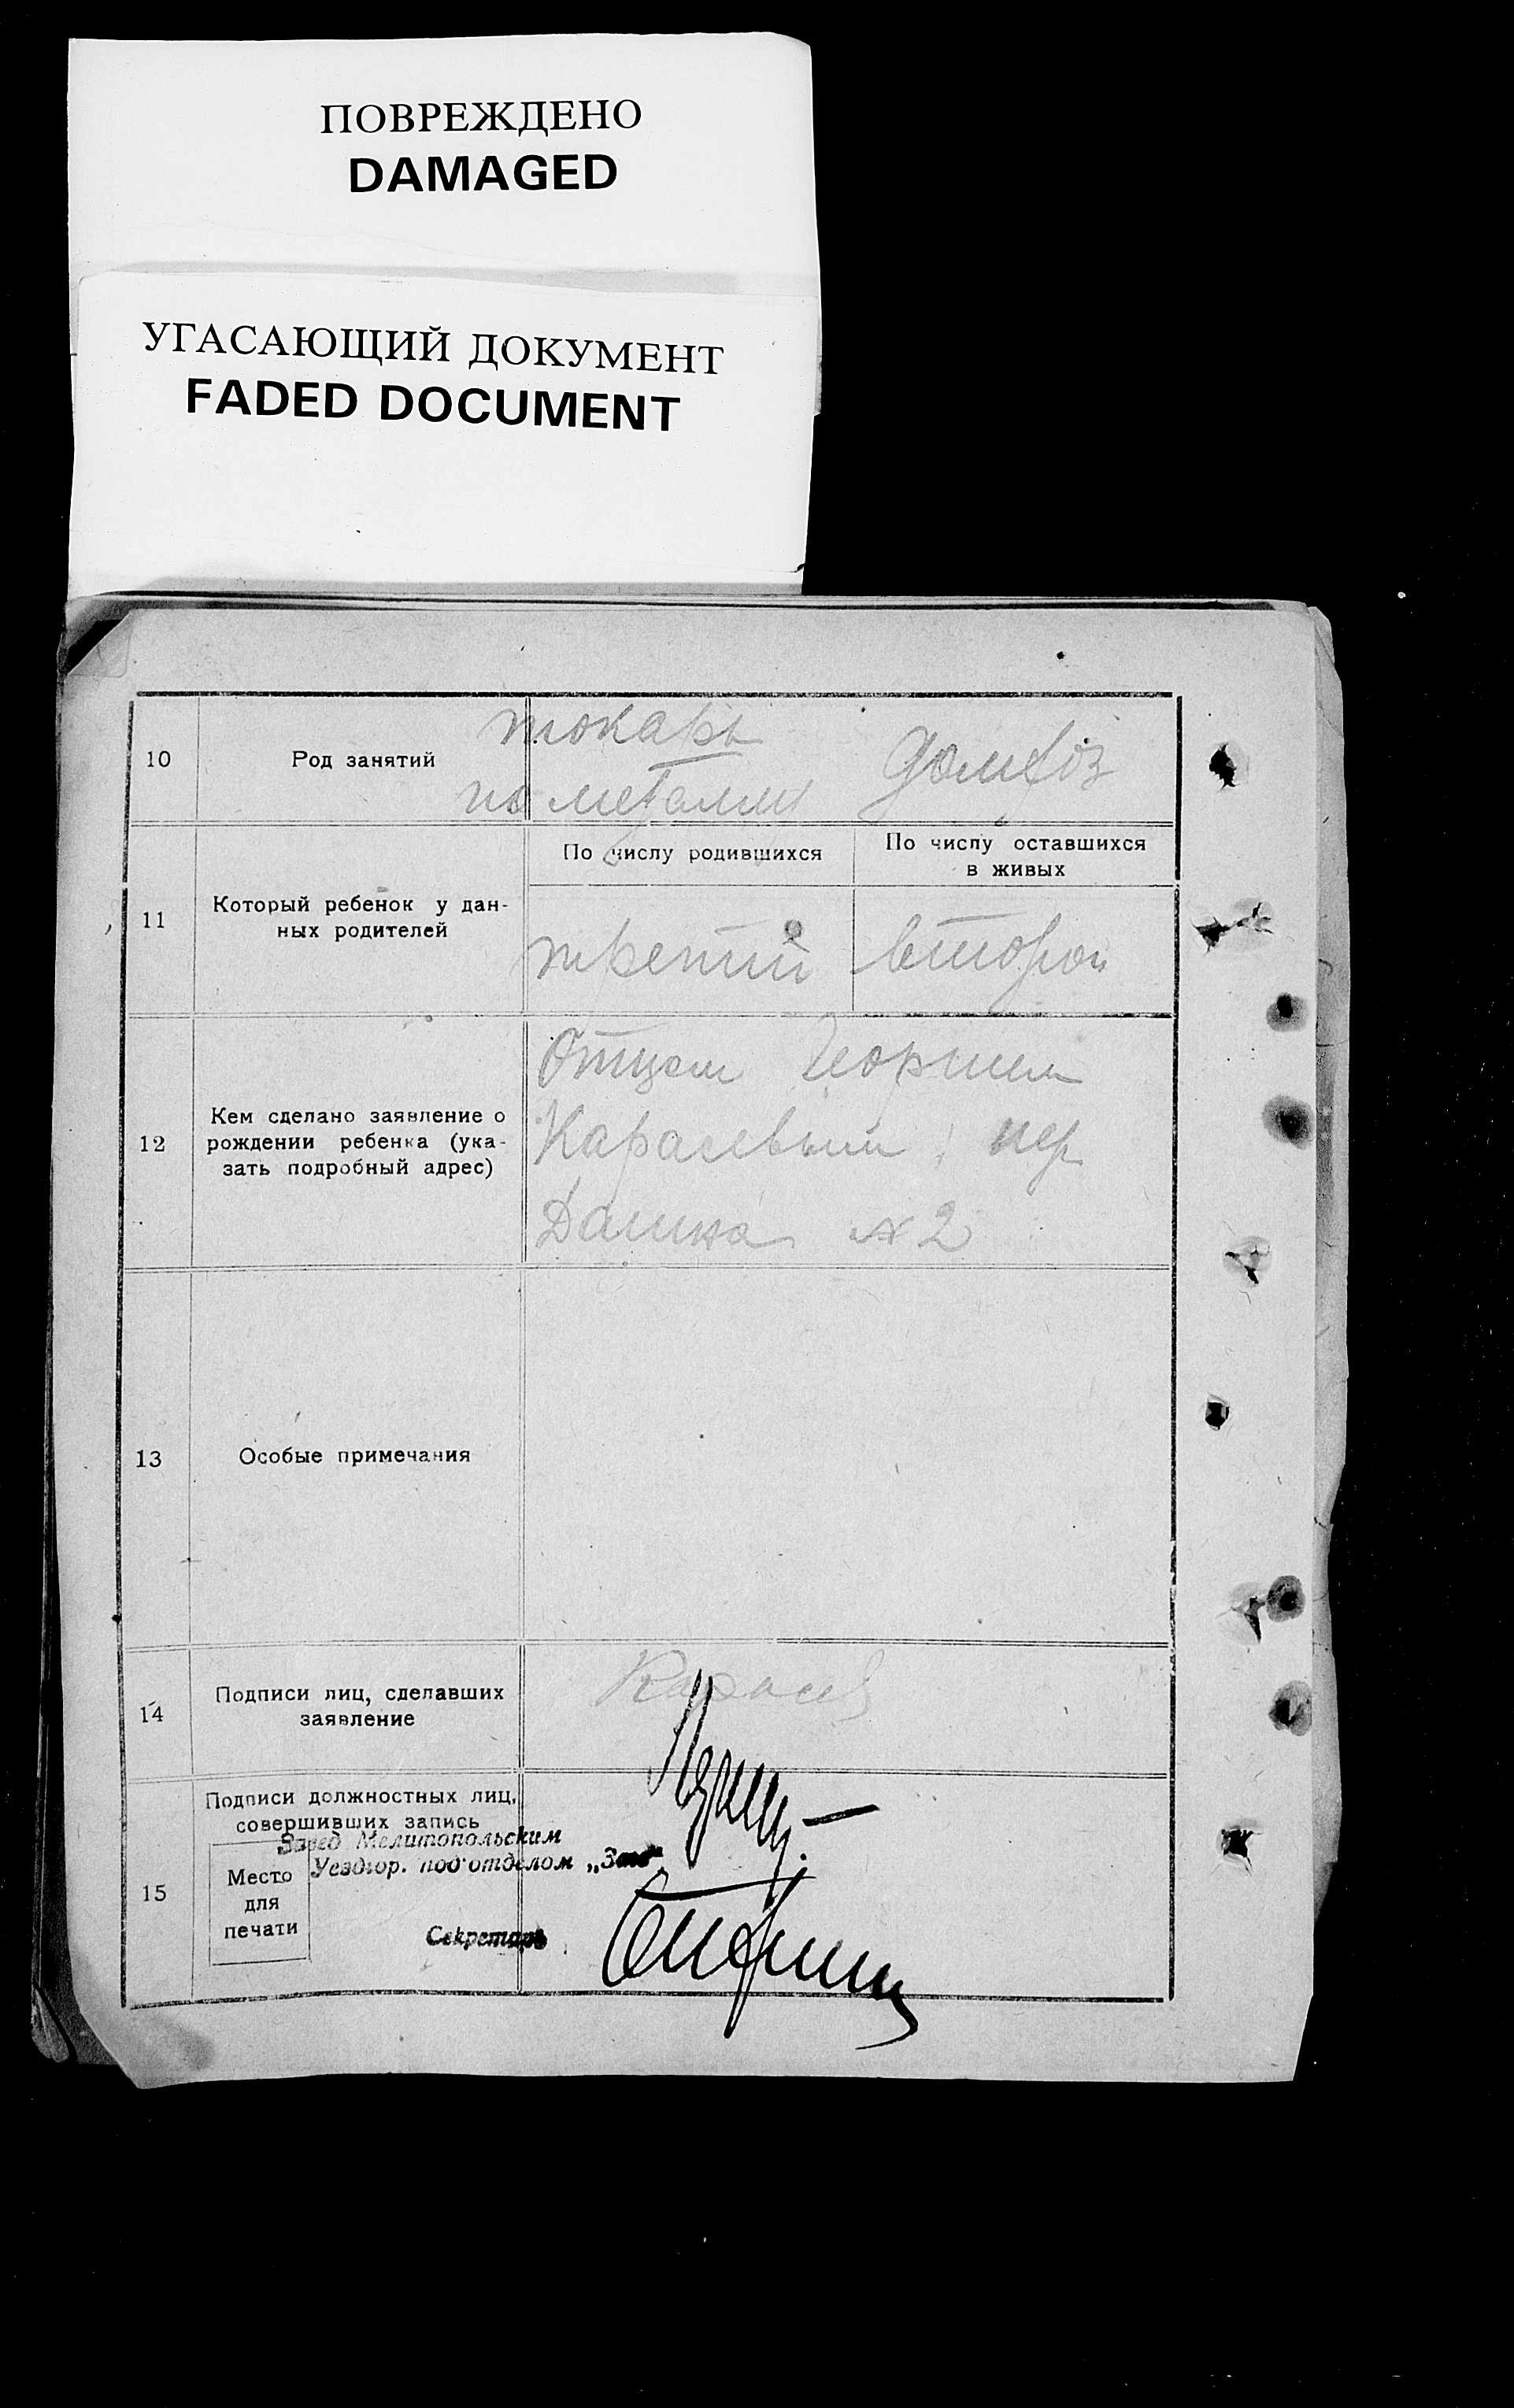 ПОВРЕЖДЕНО
DAMAGED
УГАСАЮЩИЙ ДОКУМЕНТ
FADED DOCUMENT
10
Род занятий
токарь
по металлу
домхоз
11
Который ребенок у дан-
ных родителей
По числу родившихся
По числу оставшихся
в живых
третий
второй
12
Кем сделано заявление о
рождении ребенка (ука-
зать подробный адрес)
Отцем Георгием
Карасевым пер
№ 2
13
Особые примечания
14
Подписи лиц, сделавших
заявление
Карасев
15
Подписи должностных лиц,
совершивших запись
Завед Мелитопольским
Уездгор. подотделом
Место
для
печати
Секретарь